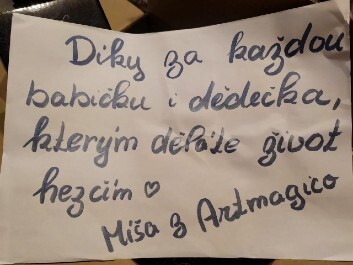 Díky za každou
babičku i dědečka,
kterým děláte život
hezčím ♡
Míša z Artmagico